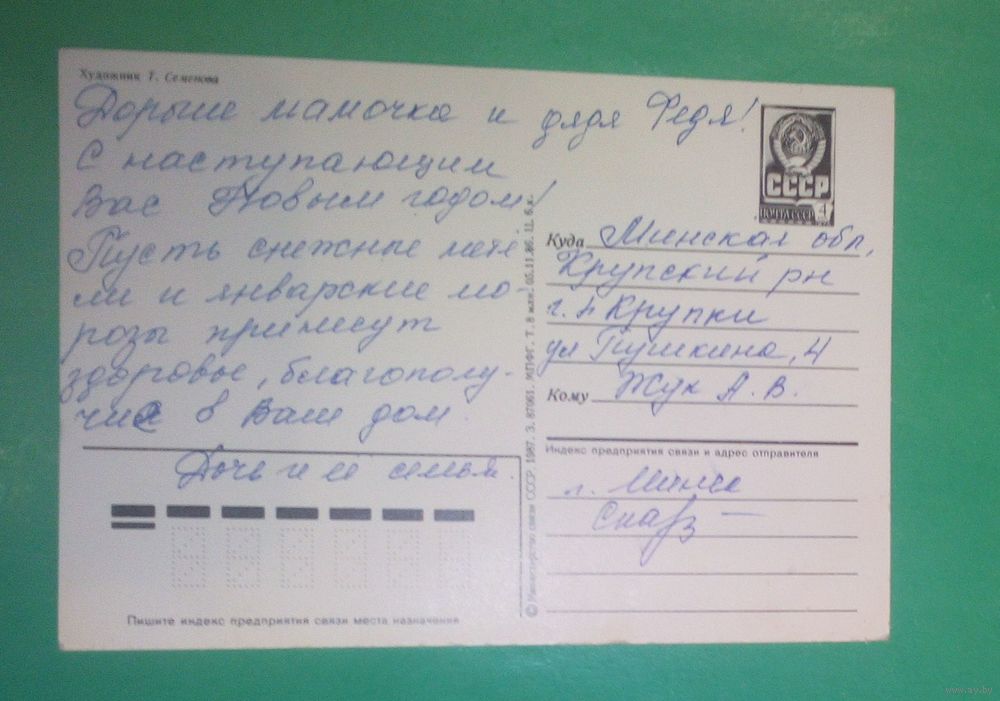 Художник Т. Семенова
Дорогие мамочка и дядя Федя!
С наступающим
Вас Новым годом!
Пусть снежные мете
ли и январские мо-
розы принесут
здоровье, благополу-
чие в Ваш дом.
Дочь и ее семья.
Пишите индекс предприятия связи места назначения
© Министерство связи СССР, 1987. З. 87061. МПФГ. Т. 8 млн. 05.11.86. Ц. 6 к.
СССР
ПОЧТА СССР 4
Куда Минская обл,
Крупский рн
г.п Крупки
ул Пушкина, 4
Кому Жук А. В.
Индекс предприятия связи и адрес отправителя
г. Минск
www.ay.by